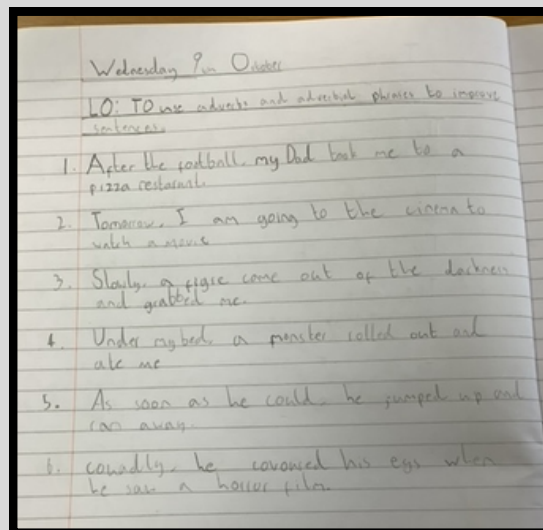 Wednesday 9th October
LO: TO use adverbs and adverbial phrases to improve
sentences.
1. After the football, my Dad took me to a
pizza restarant.
2. Tomorrow, I am going to the cinema to
watch a movie
3. Slowly, a figre come out of the darkness
and grabbed me.
4. Under my bed, a monster rolled out and
ate me
5. As soon as he could, he jumped up and
ran away.
6. cowadly, he covoured his eys when
he saw a horror film.